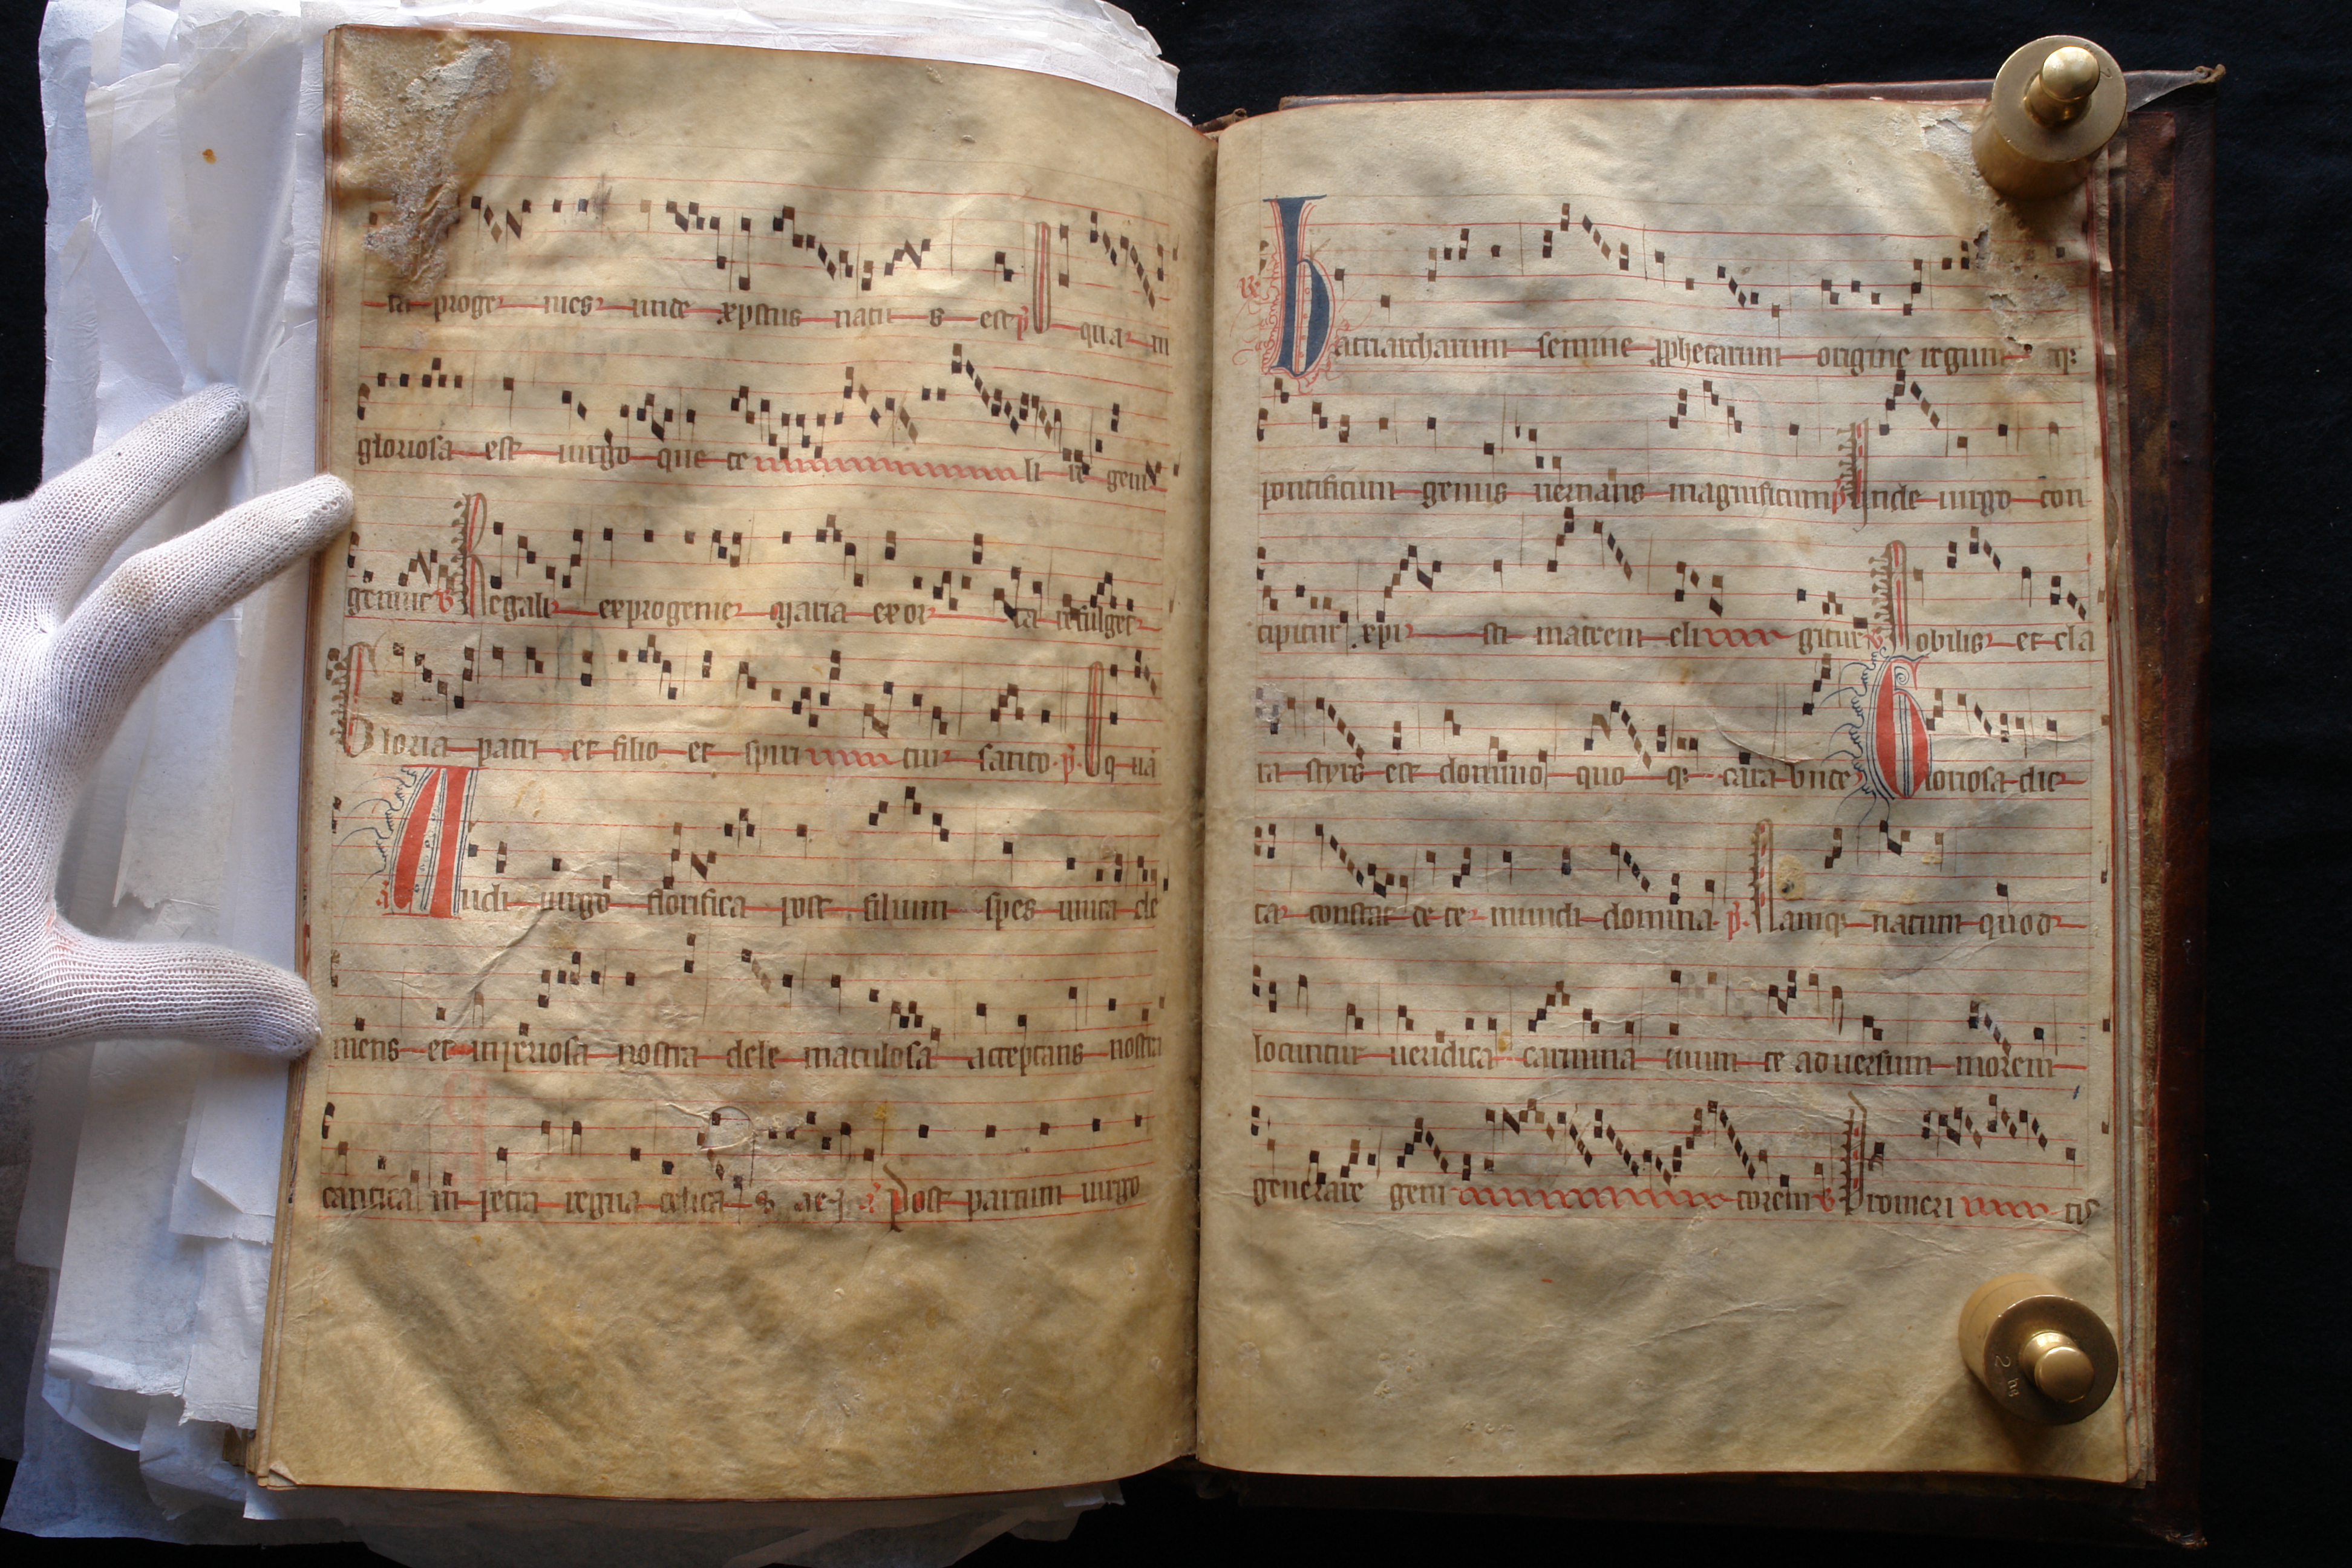 ta proge nies unde xpistus natu s est p̄ qua m
gloriosa est uirgo que ce li re gem
genuit v̄ Regali exprogenie maria exor ta refulget
Gloria patri et filio et spiri tui sancto p̄ q uā
Audi uirgo florifica post filium spes unica cle
mens et inperiosa nostra dele maculosa acceptans nostra
cantica in petra regna celica Post partum uirgo
patriarcharum semine prophetarum origine regum atq
pontificum genus uernans magnificum p̄ unde uirgo con
cipitur xpi sti matrem eli gitur v̄ Nobilis et cla
ra styrps est domino quo q cara unde Gloriosa dic
ta constat de te mundi domina p̄ Namq natum quod
locuntur ueridica carmina tuum te aduersum morem
generare geni torem v̄ Promeri tis